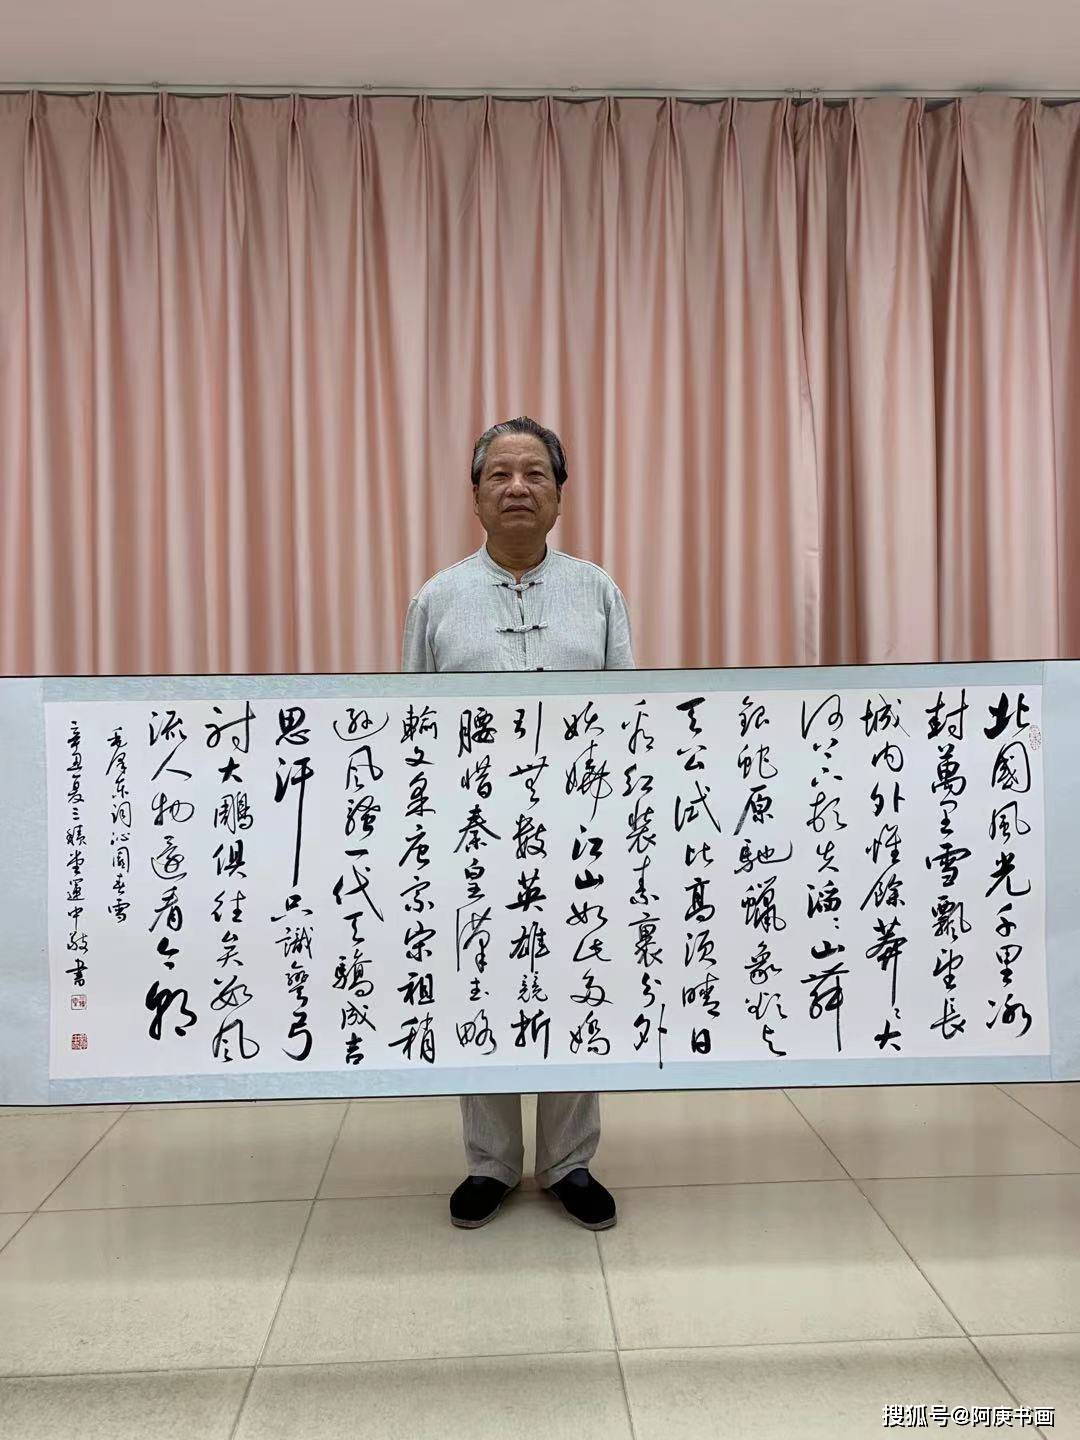 北國風光千里冰
封萬里雪飄望長
城内外惟餘莽〻大
河上下頓失滔〻山舞
銀蛇原馳蠟象欲与
天公試比高須晴日
看紅裝素裹分外
妖嬈江山如此多嬌
引無數英雄競折
腰惜秦皇漢武略
輸文采唐宗宋祖稍
遜風騷一代天驕成吉
思汗只識彎弓
射大鵰俱往矣數風
流人物還看今朝
毛澤东詞沁園春雪
辛丑夏三積堂運中敬書
搜狐号@阿庚书画